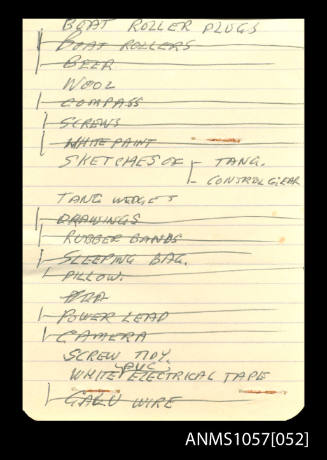 BOAT ROLLER PLUGS
BOAT ROLLERS
BEER
WOOL
COMPASS
SCREWS
WHITE PAINT
SKETCHES OF TANG.
CONTROL GEAR
TANG WEDGES
DRAWINGS
RUBBER BANDS
SLEEPING BAG.
PILLOW.
POWER LEAD
CAMERA
SCREW TIDY.
PVC
WHITE ELECTRICAL TAPE
GALV WIRE
ANMS1057[052]